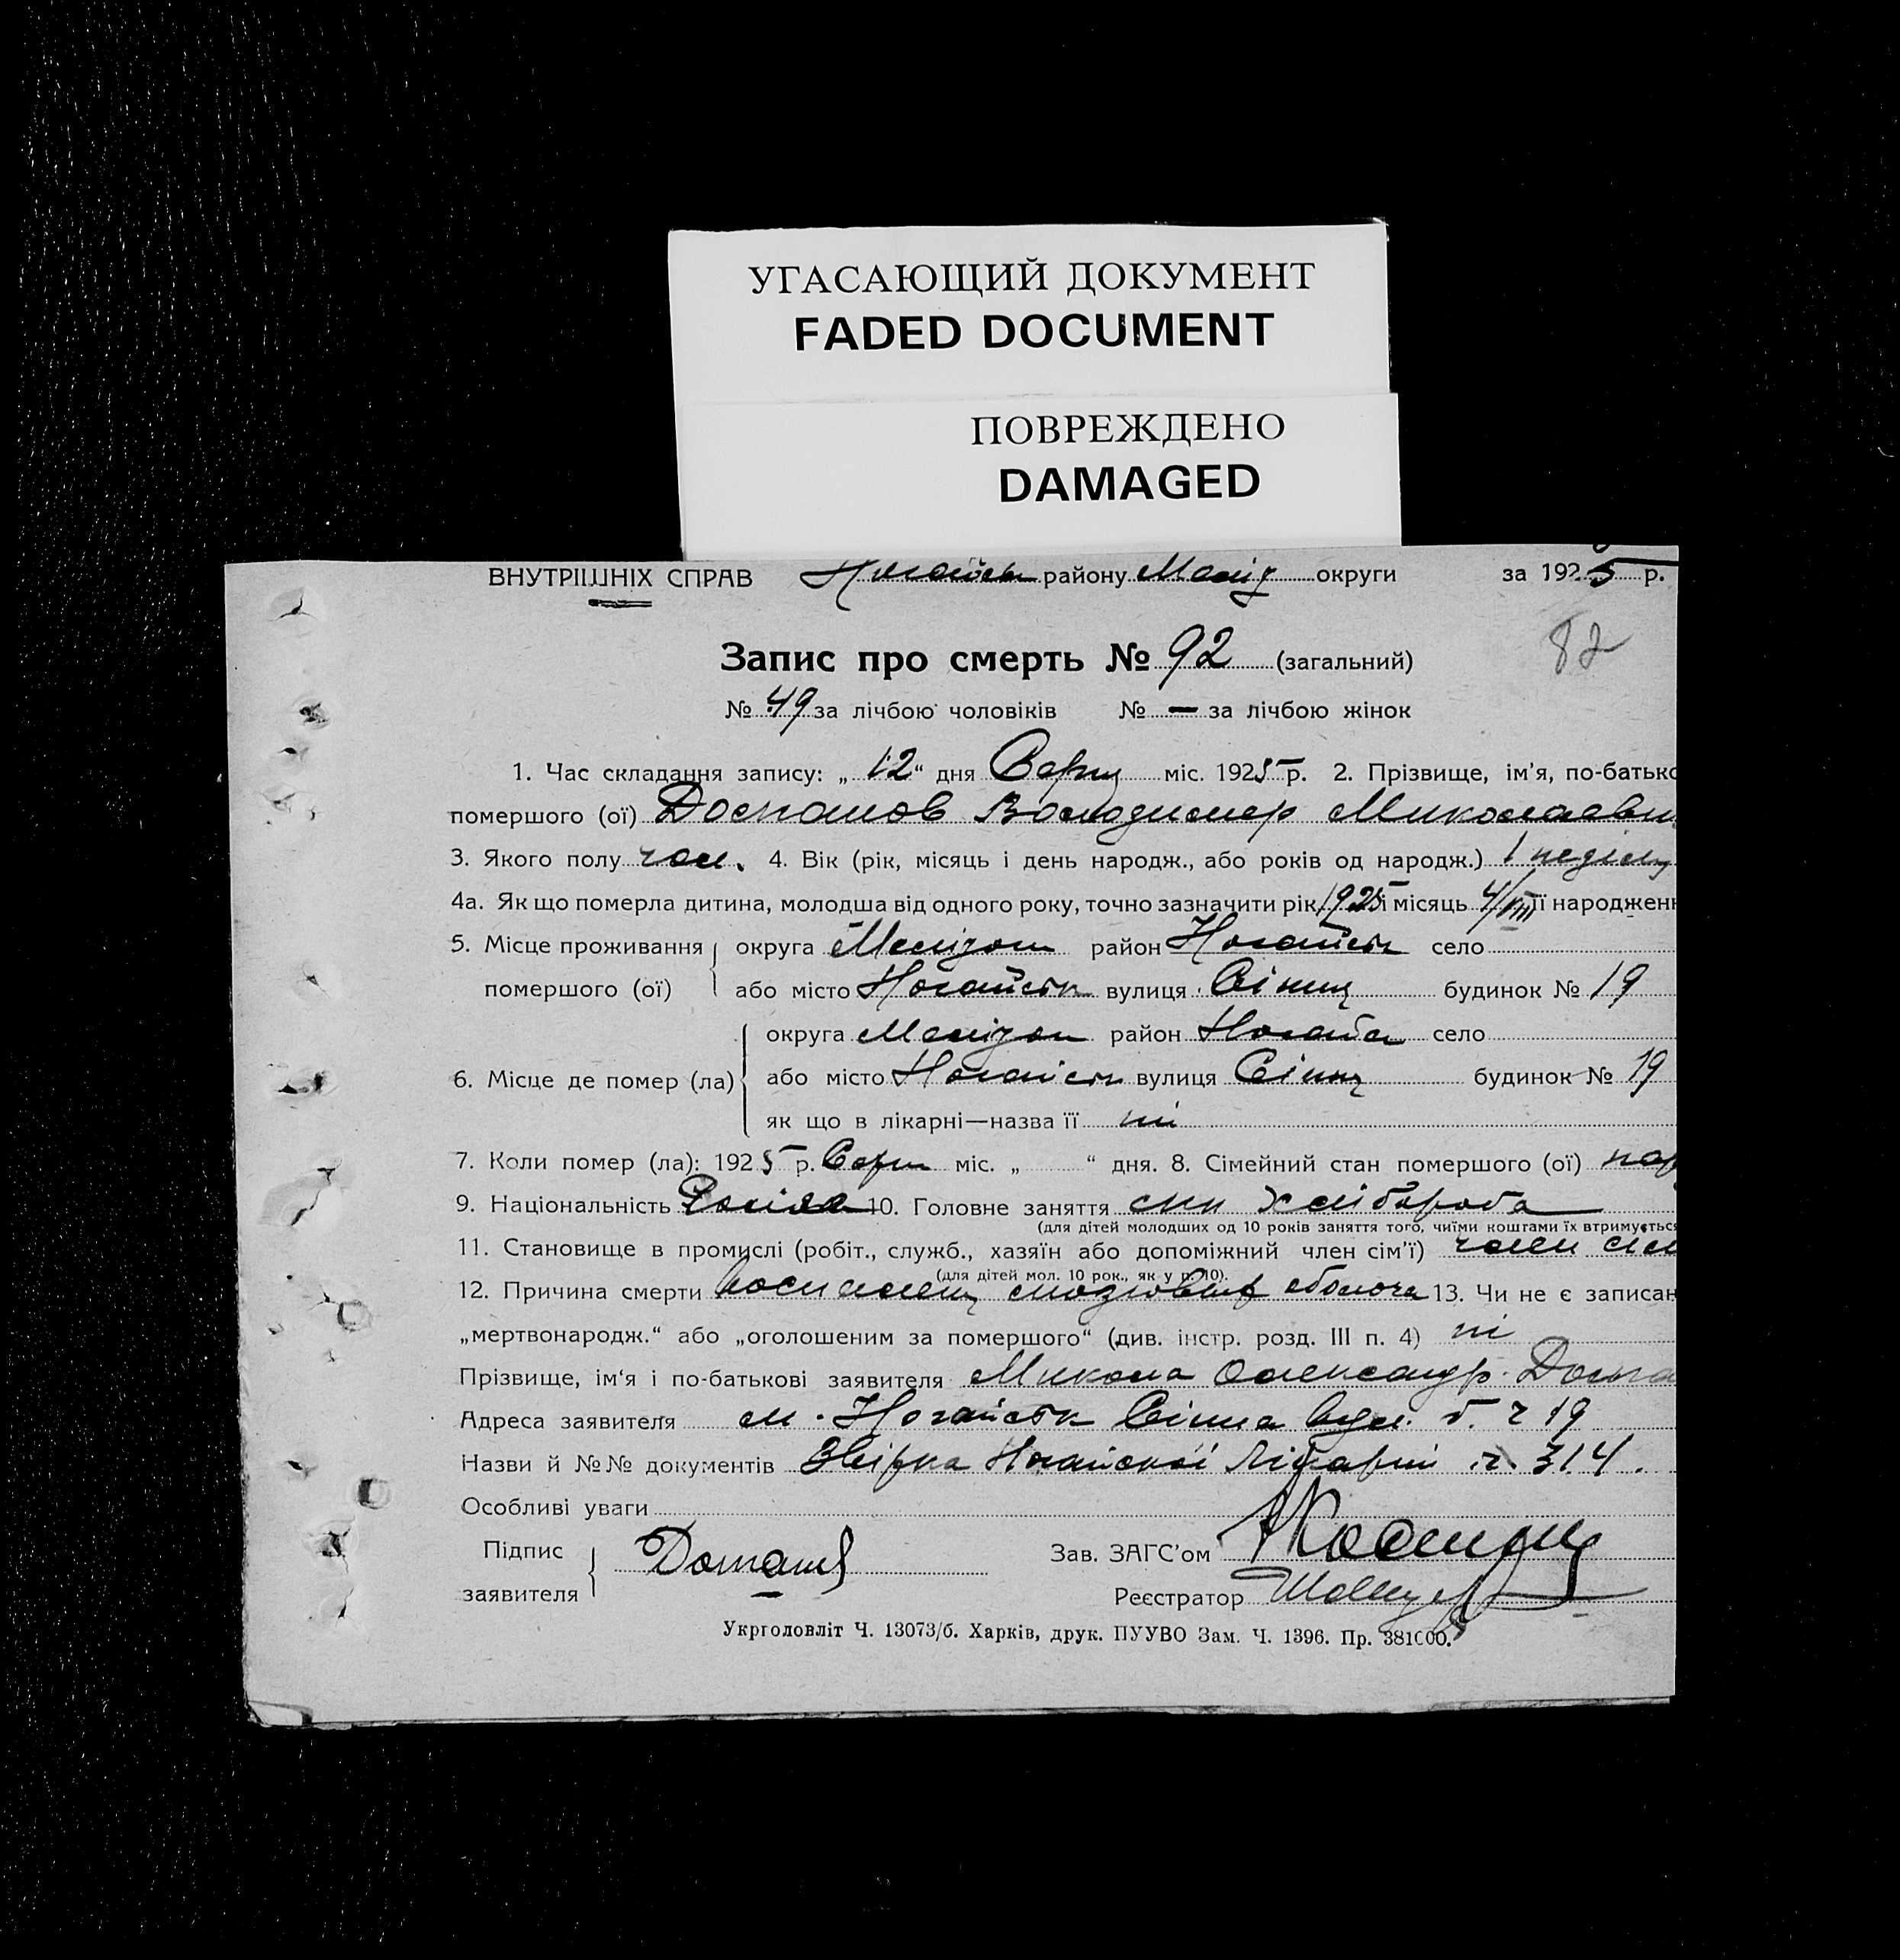 УГАСАЮЩИЙ ДОКУМЕНТ
FADED DOCUMENT
ПОВРЕЖДЕНО
DAMAGED
ВНУТРІШНІХ СПРАВ Ногайськ району Меліт округи за 1925 р.
82
Запис про смерть № 92 (загальний)
№ 49 за лічбою чоловіків № — за лічбою жінок
1. Час складання запису: „12“ дня Серпн міс. 1925 р. 2. Прізвище, ім’я, по-батько
помершого (ої) Володимир Миколаеви
3. Якого полу чол. 4. Вік (рік, місяць і день народж., або років од народж.) 1 неділя
4а. Як що померла дитина, молодша від одного року, точно зазначити рік 1925 і місяць 4/VIII її народженн
5. Місце проживання помершого (ої) округа Мелітоп район Ногайськ село
або місто Ногайськ вулиця Сінна будинок № 19
6. Місце де помер (ла) округа Мелітоп район село
або місто Ногайськ вулиця Сінна будинок № 19
як що в лікарні—назва її ні
7. Коли помер (ла): 1925 р. Серпн міс. „ “ дня. 8. Сімейний стан помершого (ої)
9. Національність 10. Головне заняття син хлібороба
(для дітей молодших од 10 років заняття того, чиїми коштами їх втримується
11. Становище в промислі (робіт., служб., хазяїн або допоміжний член сім’ї) член сім
(для дітей мол. 10 рок., як у п. 10).
12. Причина смерти 13. Чи не є записан
„мертвонародж.“ або „оголошеним за помершого“ (див. інстр. розд. III п. 4) ні
Прізвище, ім‘я і по-батькові заявителя Микола Олександр.
Адреса заявителя м. Ногайськ Сінна вул. б. ч 19
Назви й №№ документів Ногайської ч. 314.
Особливі уваги
Підпис заявителя
Зав. ЗАГС’ом
Реєстратор
Укрголовліт Ч. 13073/б. Харків, друк. ПУУВО Зам. Ч. 1396. Пр. 381000.